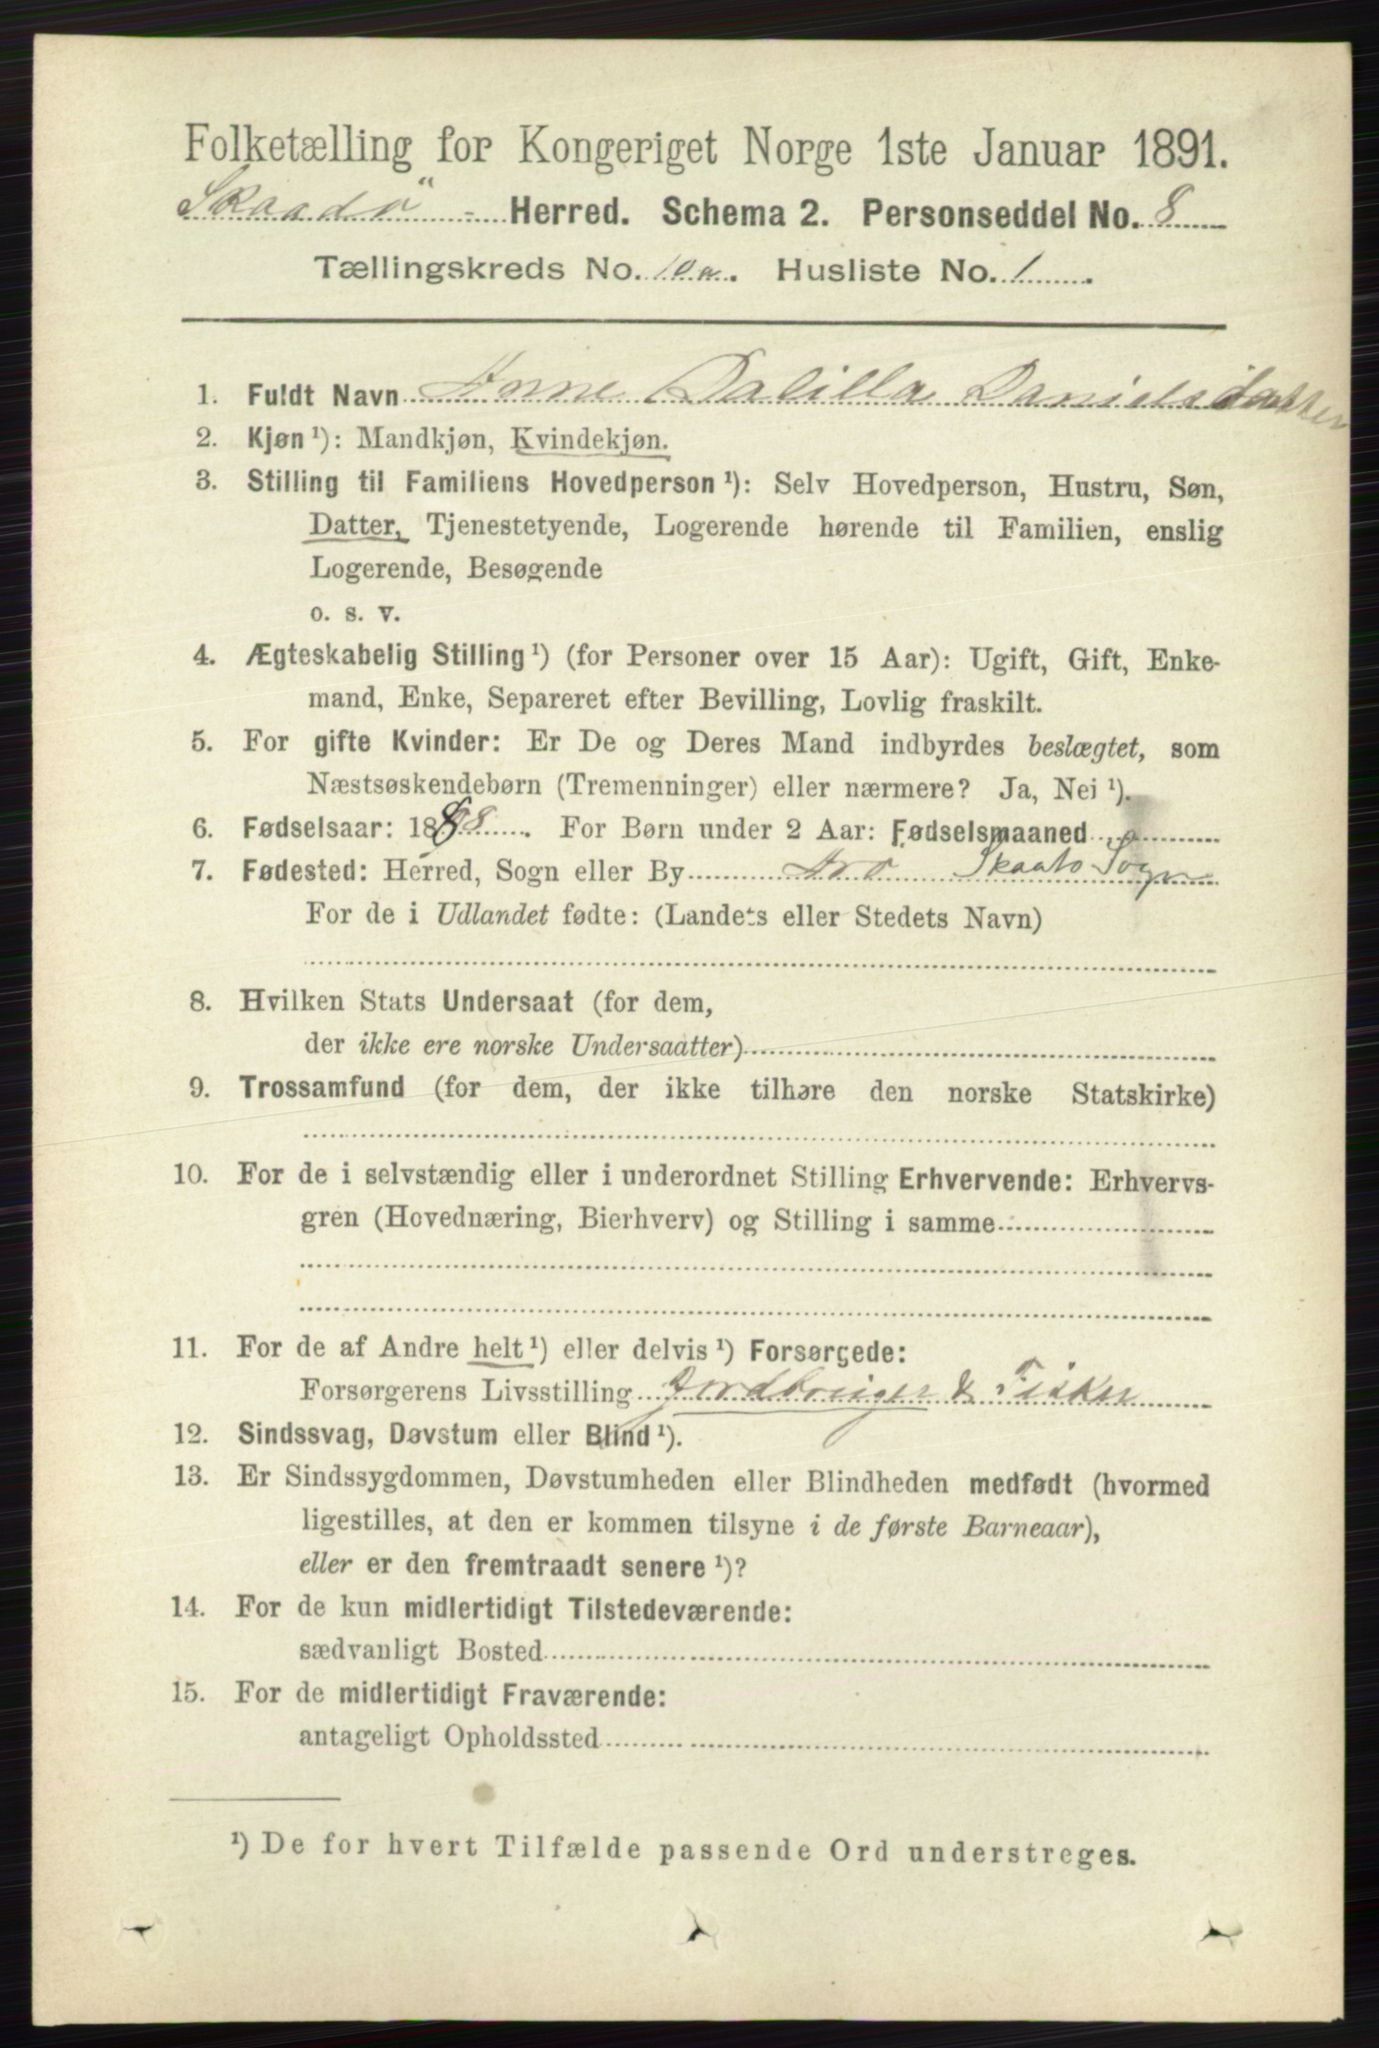 Folketælling for Kongeriget Norge 1ste Januar 1891.
Skaadö - Herred. Schema 2. Personseddel No. 8
Tællingskreds No. 10a. Husliste No. 1.
1. Fuldt Navn Anne Dalilla Danielsdatter
2. Kjøn ¹): Mandkjøn, Kvindekjøn.
3. Stilling til Familiens Hovedperson ¹): Selv Hovedperson, Hustru, Søn,
Datter, Tjenestetyende, Logerende hørende til Familien, enslig
Logerende, Besøgende
o. s. v.
4. Ægteskabelig Stilling ¹) (for Personer over 15 Aar): Ugift, Gift, Enke-
mand, Enke, Separeret efter Bevilling, Lovlig fraskilt.
5. For gifte Kvinder: Er De og Deres Mand indbyrdes beslægtet, som
Næstsøskendebørn (Tremenninger) eller nærmere? Ja, Nei ¹).
6. Fødselsaar: 1888. For Børn under 2 Aar: Fødselsmaaned
7. Fødested: Herred, Sogn eller By Arö Skaatö Sogn
For de i Udlandet fødte: (Landets eller Stedets Navn)
8. Hvilken Stats Undersaat (for dem,
der ikke ere norske Undersaatter)
9. Trossamfund (for dem, der ikke tilhøre den norske Statskirke)
10. For de i selvstændig eller i underordnet Stilling Erhvervende: Erhvervs-
gren (Hovednæring, Bierhverv) og Stilling i samme
11. For de af Andre helt ¹) eller delvis ¹) Forsørgede:
Forsørgerens Livsstilling Jordbruger & Fisker
12. Sindssvag, Døvstum eller Blind ¹).
13. Er Sindssygdommen, Døvstumheden eller Blindheden medfødt (hvormed
ligestilles, at den er kommen tilsyne i de første Barneaar),
eller er den fremtraadt senere ¹)?
14. For de kun midlertidigt Tilstedeværende:
sædvanligt Bosted
15. For de midlertidigt Fraværende:
antageligt Opholdssted
¹) De for hvert Tilfælde passende Ord understreges.